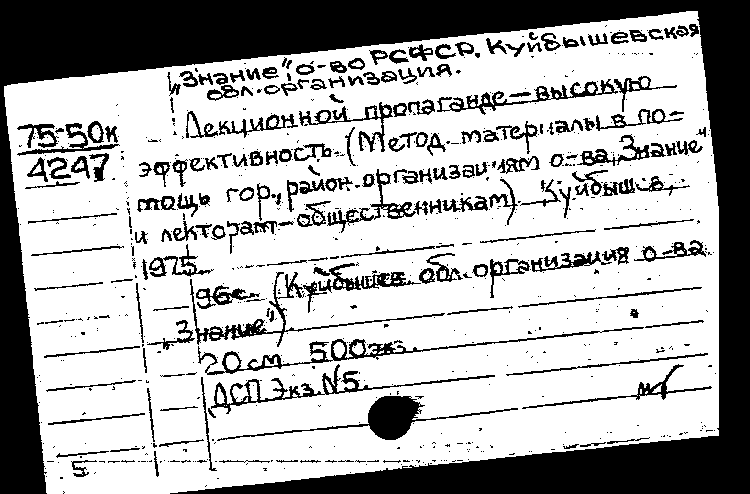 „Знание", о-во РСФСР. Куйбышевская
обл. организация.
75-50к
4247
Лекционной пропаганде — высокую
эффективность (Метод. материалы в по-
мощь гор., район. организациям о-ва „Знание"
и лекторам-общественникам) Куйбышев,
1975.
96с. (Куйбышев. обл. организация о-ва
„Знание")
20 см 500 экз.
ДСП. Экз. №5.
5